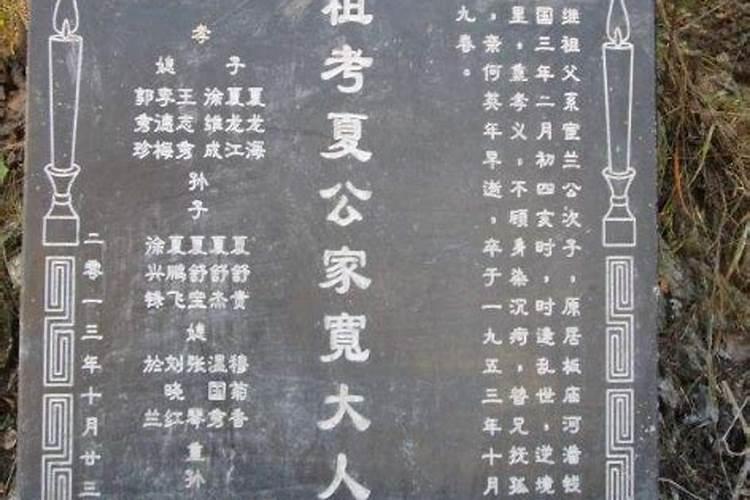 继祖父系宣兰公次子，原居板庙河潘钱
国三年二月初四亥时，时逢乱世，逆境
里，重孝义，不顾身染沉疴，替兄抚孤
，奈何英年早逝，卒于一九五三年十月
九春。
祖考夏公家寬大人
孝
子
夏龙海
夏龙江
徐维成
媳
王志秀
李德梅
郭秀珍
孙子
夏舒贵
夏舒杰
夏舒宝
夏鹏飞
徐兴锋
媳
穆菊香
温国秀
张琴
刘晓红
於兰
重孙
二零一三年十月廿三